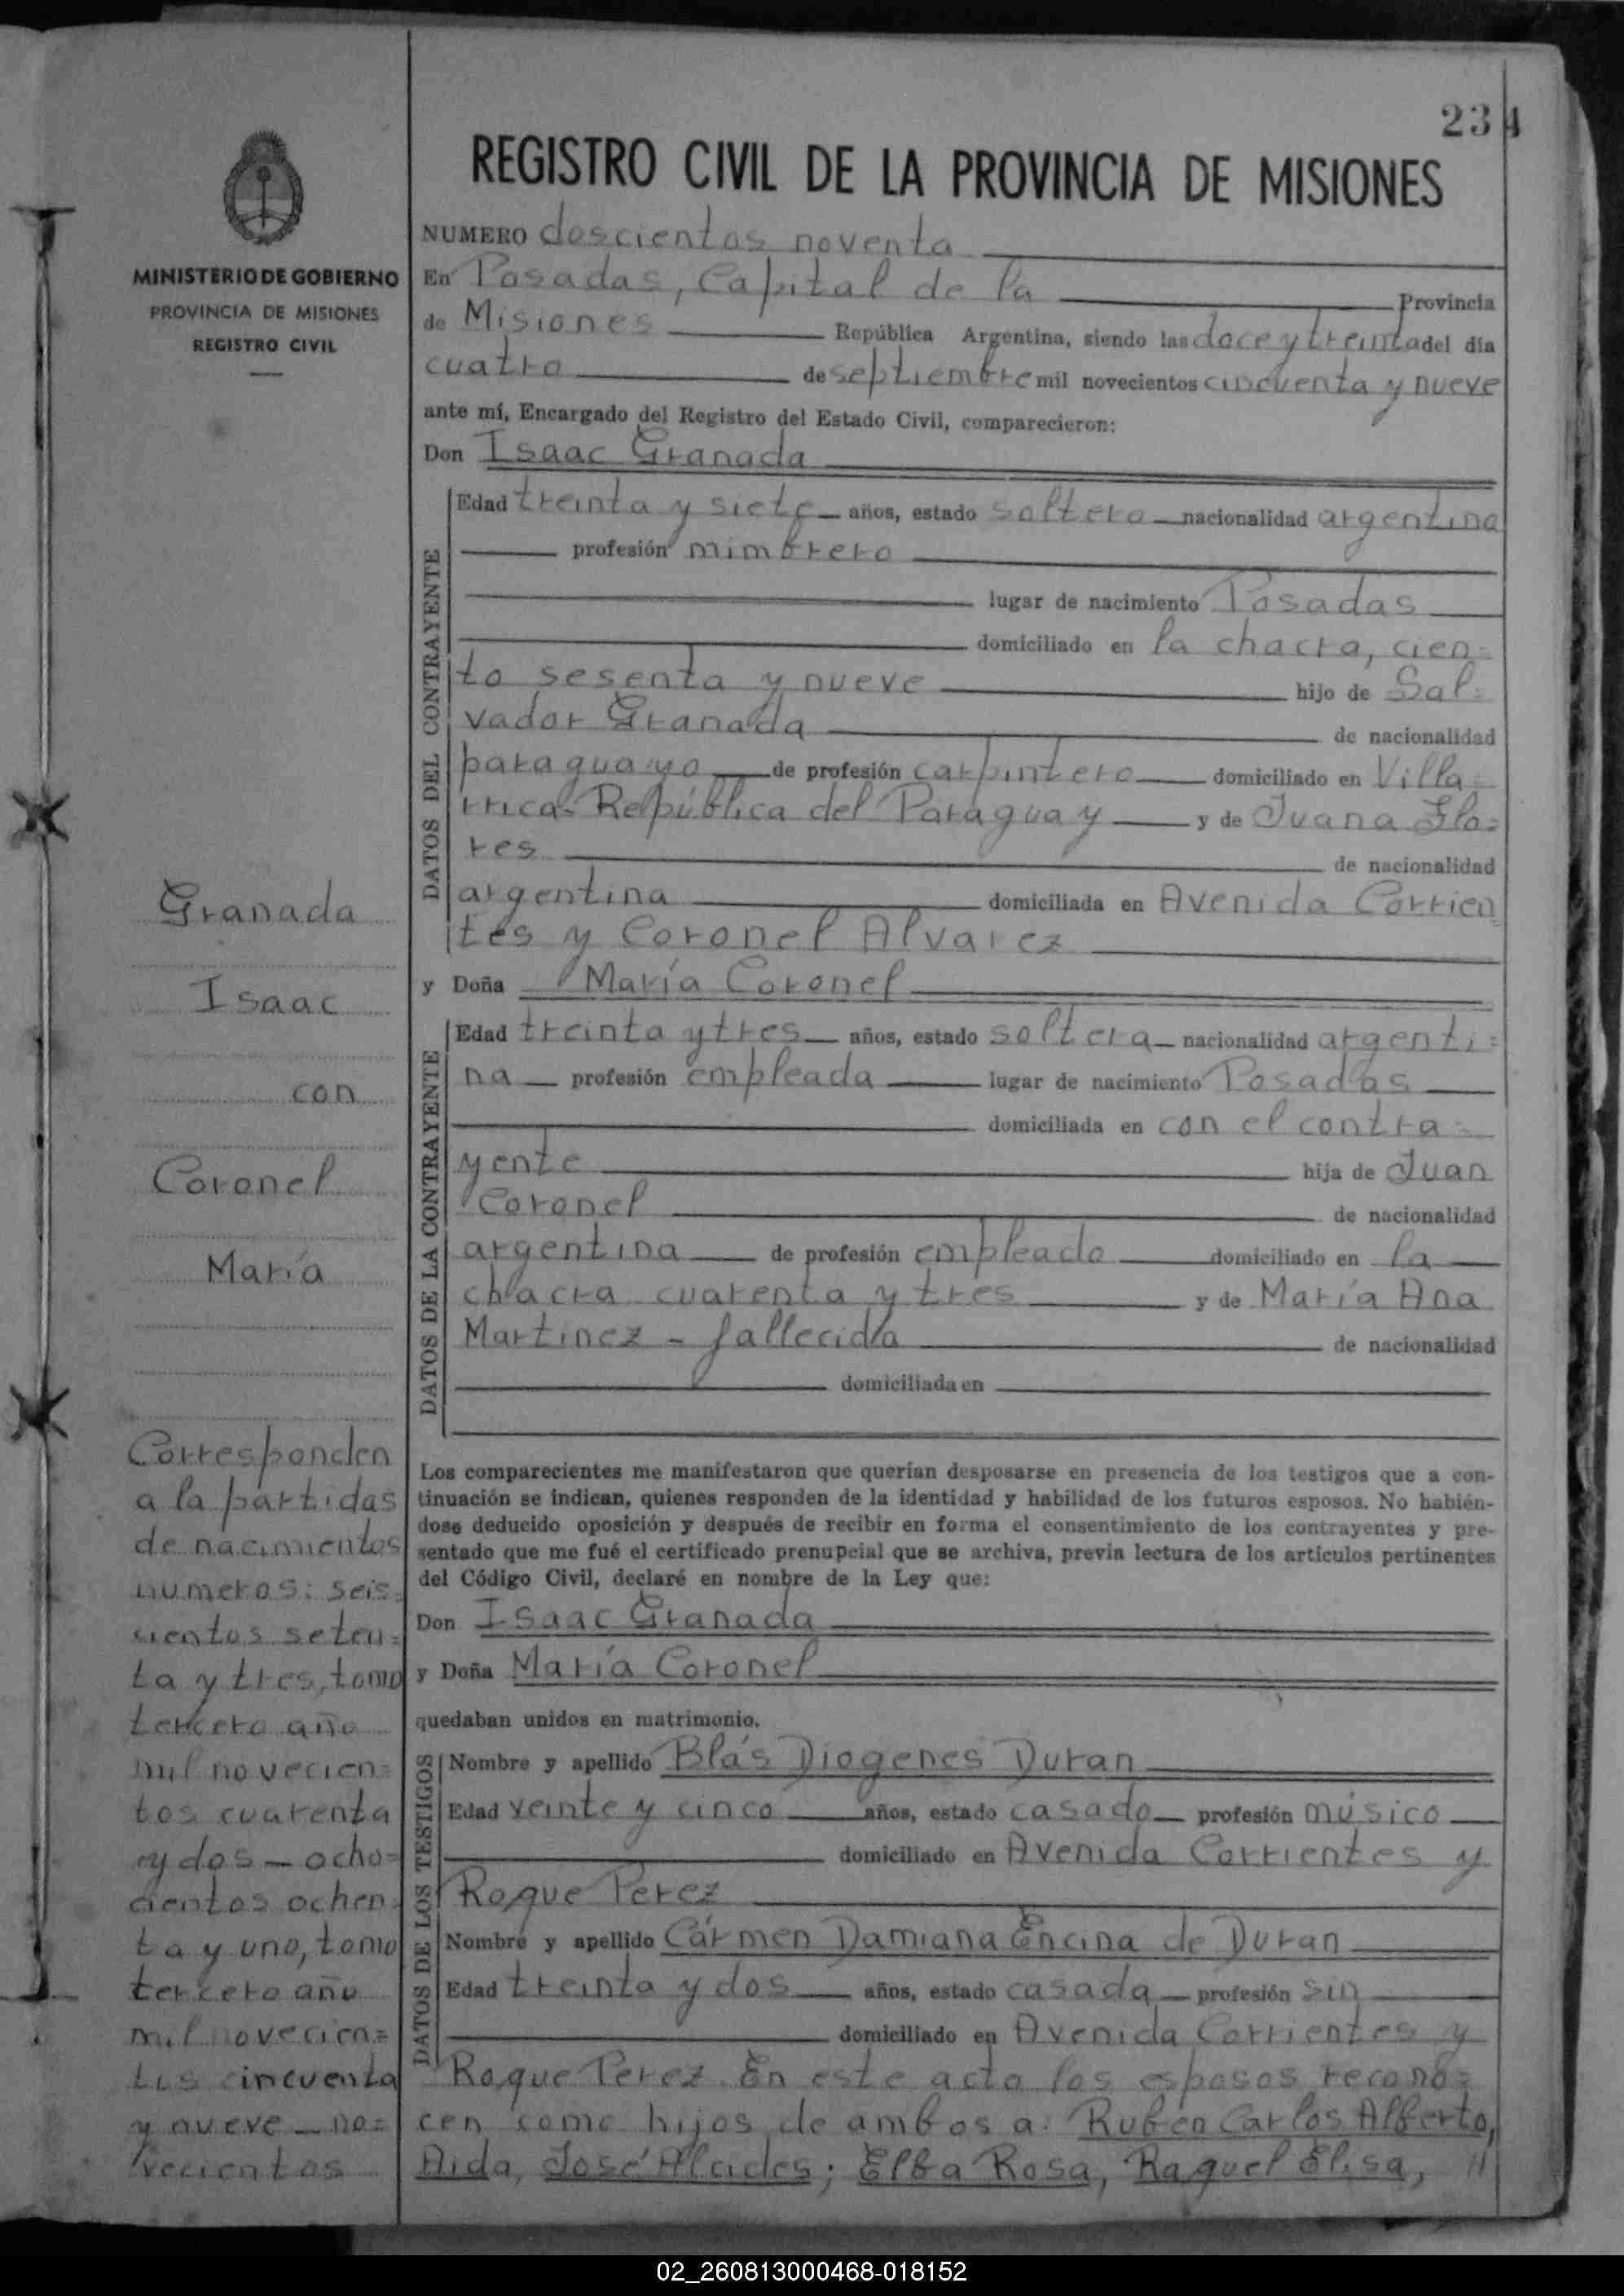 234
REGISTRO CIVIL DE LA PROVINCIA DE MISIONES
MINISTERIO DE GOBIERNO
PROVINCIA DE MISIONES
REGISTRO CIVIL
NUMERO doscientos noventa
En Posadas, Capital de la Provincia
de Misiones República Argentina, siendo las doce y treinta del día
cuatro de septiembre mil novecientos cincuenta y nueve
ante mí, Encargado del Registro del Estado Civil, comparecieron:
Don Isaac Granada
DATOS DEL CONTRAYENTE
Edad treinta y siete años, estado soltero nacionalidad argentina
profesión mimbrero
lugar de nacimiento Posadas
domiciliado en la chacra, cien=
to sesenta y nueve hijo de Sal=
vador Granada de nacionalidad
paraguayo de profesión carpintero domiciliado en Villa=
rrica- República del Paraguay y de Juana Flo=
res de nacionalidad
argentina domiciliada en Avenida Corrien=
tes y Coronel Alvarez
y Doña María Coronel
DATOS DE LA CONTRAYENTE
Edad treinta y tres años, estado soltera nacionalidad argenti=
na profesión empleada lugar de nacimiento Posadas
domiciliada en con el contra=
yente hija de Juan
Coronel de nacionalidad
argentina de profesión empleado domiciliado en la
chacra cuarenta y tres y de María Ana
Martinez - fallecida de nacionalidad
domiciliada en
Los comparecientes me manifestaron que querían desposarse en presencia de los testigos que a con-
tinuación se indican, quienes responden de la identidad y habilidad de los futuros esposos. No habién-
dose deducido oposición y después de recibir en forma el consentimiento de los contrayentes y pre-
sentado que me fué el certificado prenupcial que se archiva, previa lectura de los artículos pertinentes
del Código Civil, declaré en nombre de la Ley que:
Don Isaac Granada
y Doña María Coronel
quedaban unidos en matrimonio.
DATOS DE LOS TESTIGOS
Nombre y apellido Blás Diogenes Duran
Edad veinte y cinco años, estado casado profesión músico
domiciliado en Avenida Corrientes y
Roque Perez
Nombre y apellido Cármen Damiana Encina de Duran
Edad treinta y dos años, estado casada profesión sin
domiciliado en Avenida Corrientes y
Roque Perez. En este acto los esposos recono=
cen como hijos de ambos a: Rubén Carlos Alberto,
Aida, José Alcides; Elba Rosa, Raquel Elisa, //
Granada
Isaac
con
Coronel
María
Corresponden
a la partidas
de nacimientos
numeros: seis=
cientos seten=
ta y tres, tomo
tercero año
mil novecien=
tos cuarenta
y dos - ocho=
cientos ochen=
ta y uno, tomo
tercero año
mil novecien=
tos cincuenta
y nueve - no=
vecientos
02_260813000468-018152